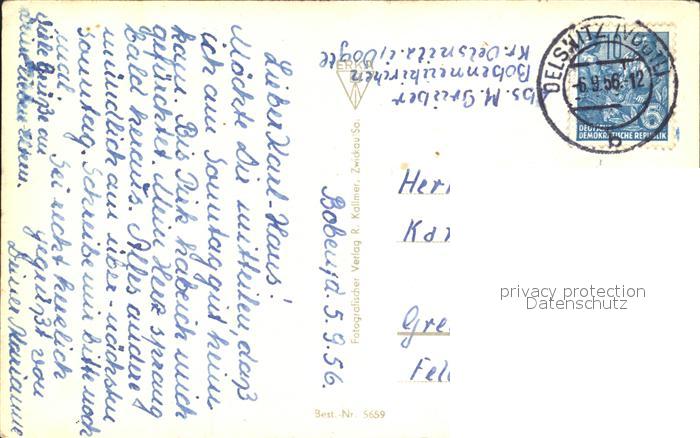 Lieber Karl-Hans!
Möchte Dir mitteilen, daß
ich am Sonntag gut heim
kam. Bis Pirk habe ich mich
gefürchtet. Mein Herz sprang
bald heraus. Alles andere
mündlich am über-nächsten
Sonntag. Schreibe mir bitte noch
mal. Sei recht herzlich
gegrüßt von
Deiner Marianne
Viele Grüße an
Deine lieben Eltern.
Bobengr. d. 5.9.56.
Abs. M. Grüber
Bobenneukirchen
Kr. Oelsnitz i/Vogtl
ERKA
Fotografischer Verlag R. Kallmer, Zwickau/Sa.
Best.-Nr. 5659
OELSNITZ (VOGTL)
-6.9.56.-12
b
10
DEUTSCHE
DEMOKRATISCHE REPUBLIK
Herr
Kar
Gre
Fel
privacy protection
Datenschutz